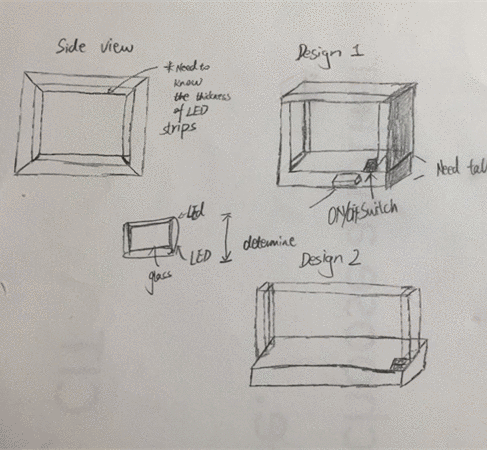 Side view
* Need to
know
the thickness
of LED
strips
Design 1
Need tal
ON/Off Switch
LED
LED
glass
determine
Design 2